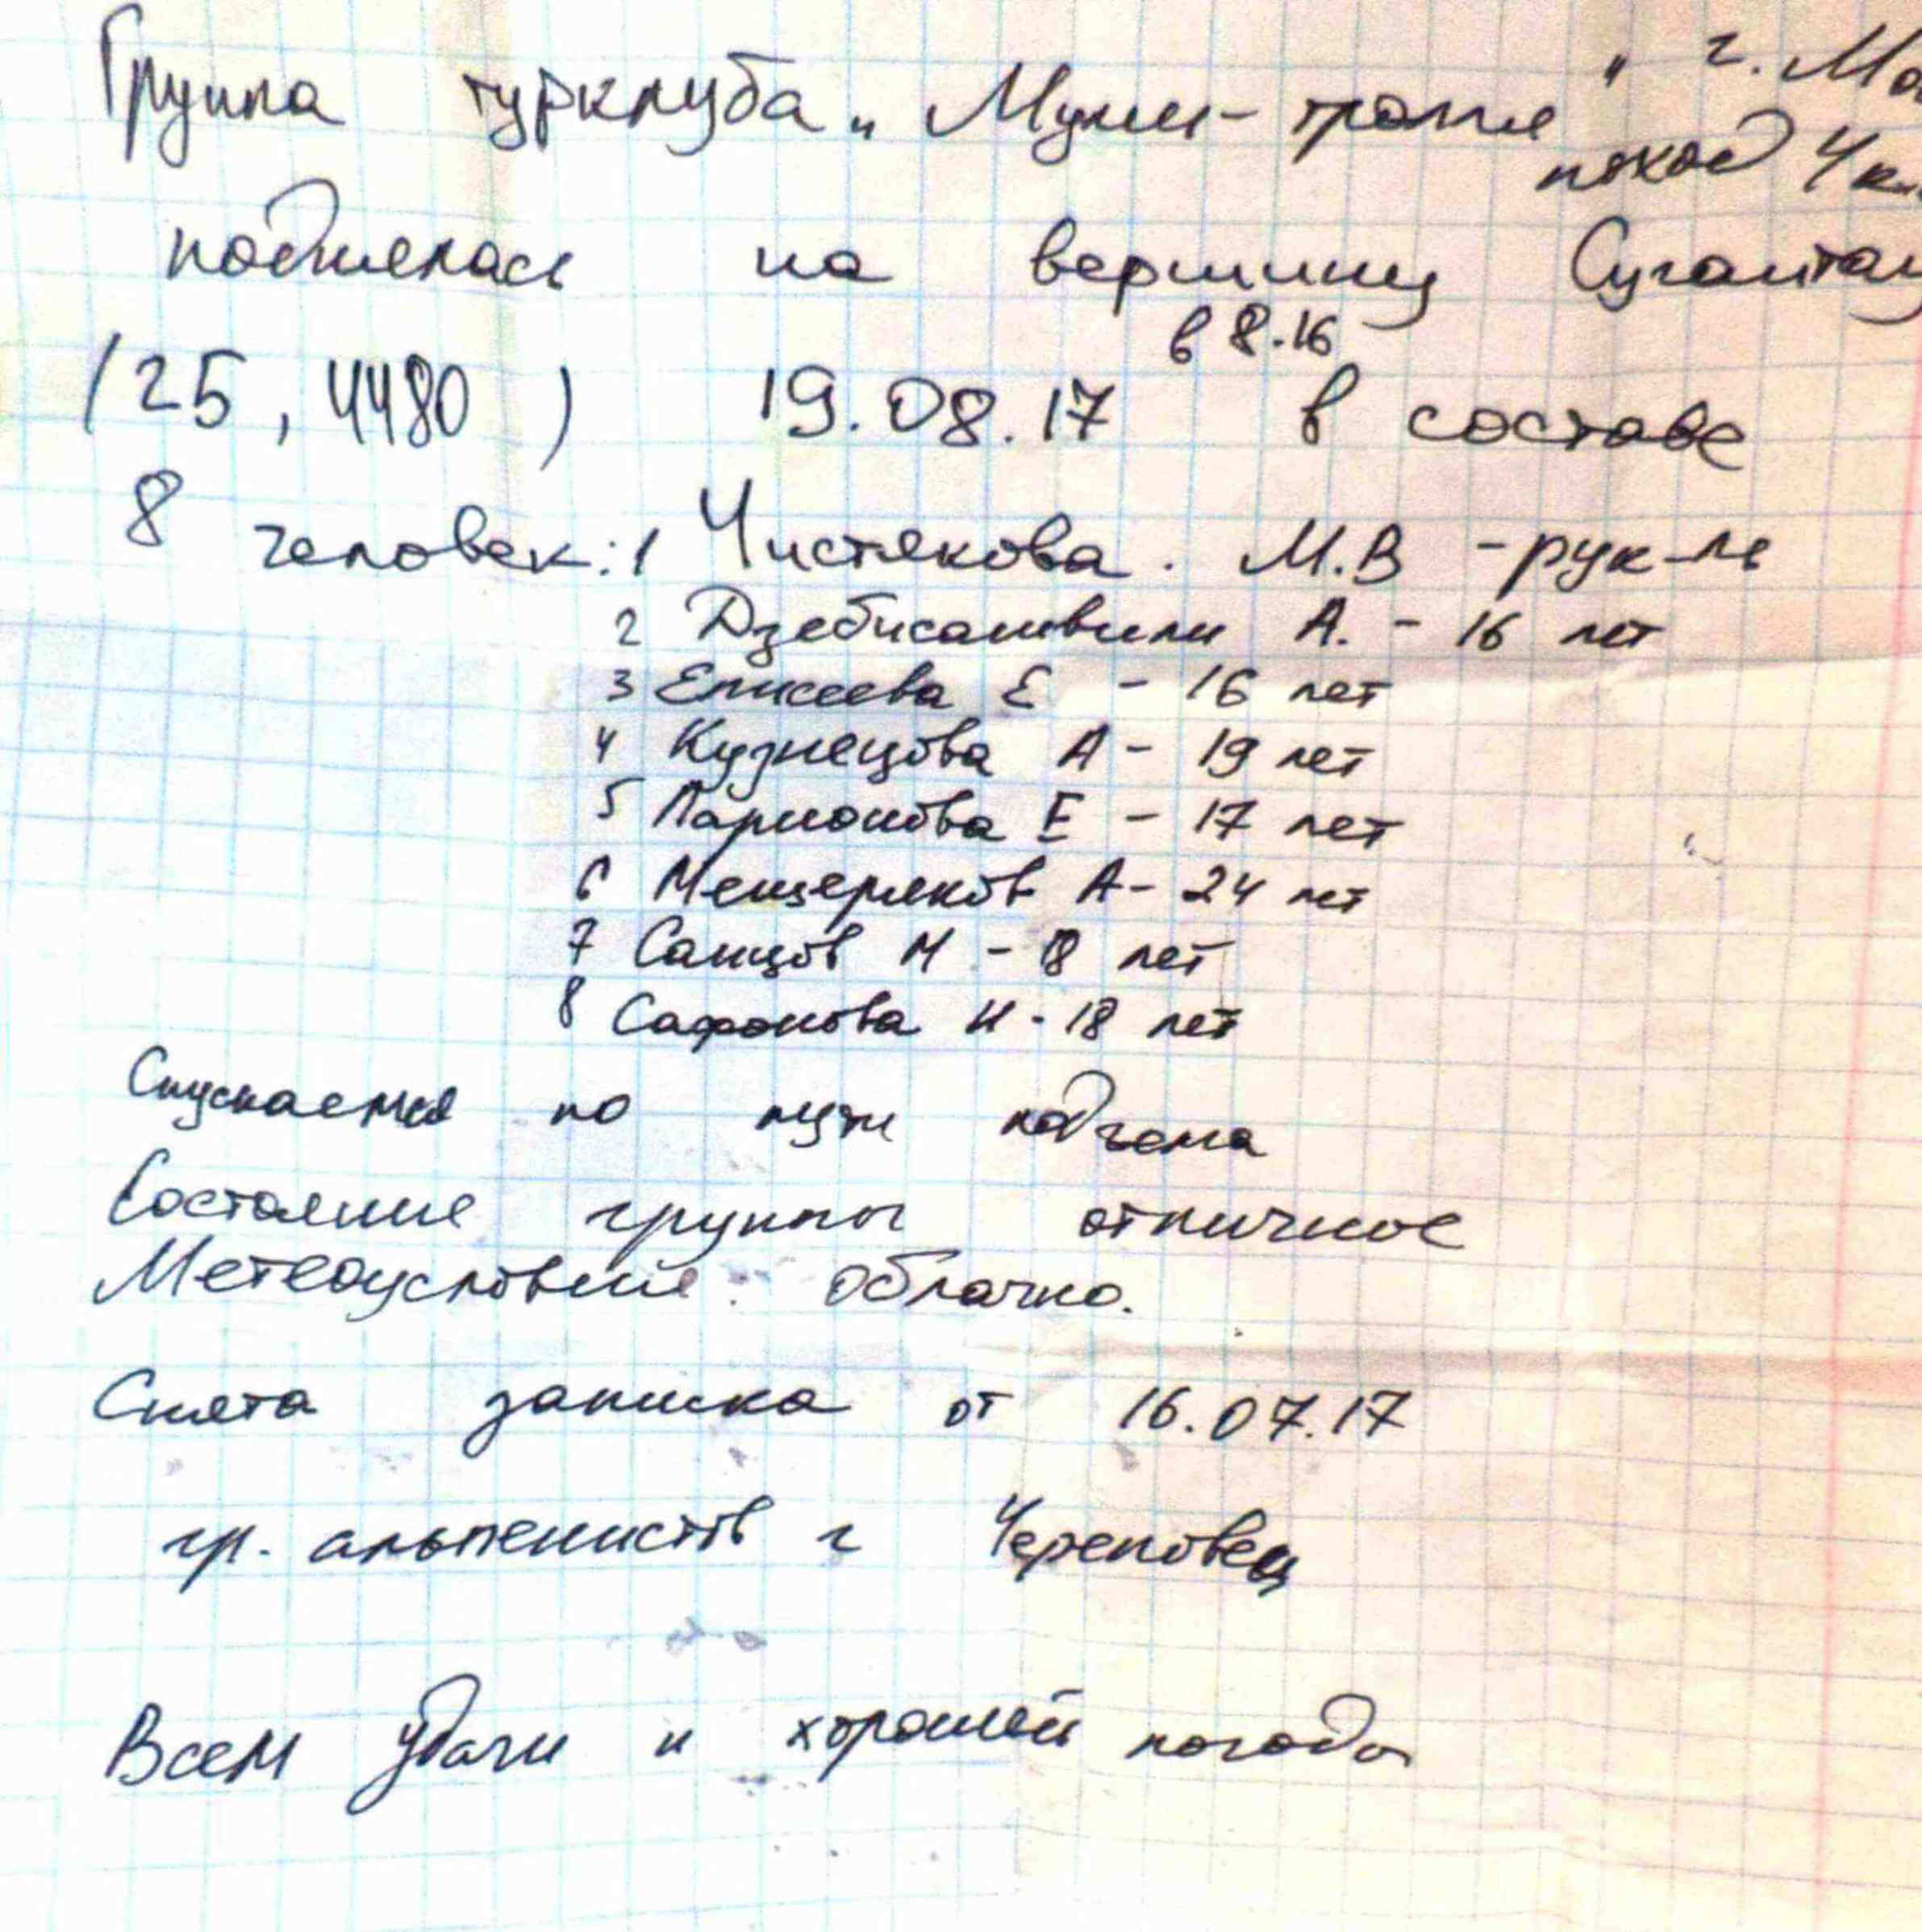 Группа турклуба „Муми-тролли" г. Мо
поход 4 к.
поднялась на вершину Сугантау
в 8.16
(2Б, 4480) 19.08.17 в составе
8 человек: 1 Чистякова. М.В - рук-ль
2 Дзебисашвили А. - 16 лет
3 Елисеева Е - 16 лет
4 Кузнецова А - 19 лет
5 Ларионова Е - 17 лет
6 Мещеряков А - 24 лет
7 М - 18 лет
8 Сафонова И - 18 лет
Спускаемся по пути подъема
Состояние группы отличное
Метеоусловие: облачно.
Снята записка от 16.07.17
гр. альпенистов г Череповец
Всем удачи и хорошей погоды